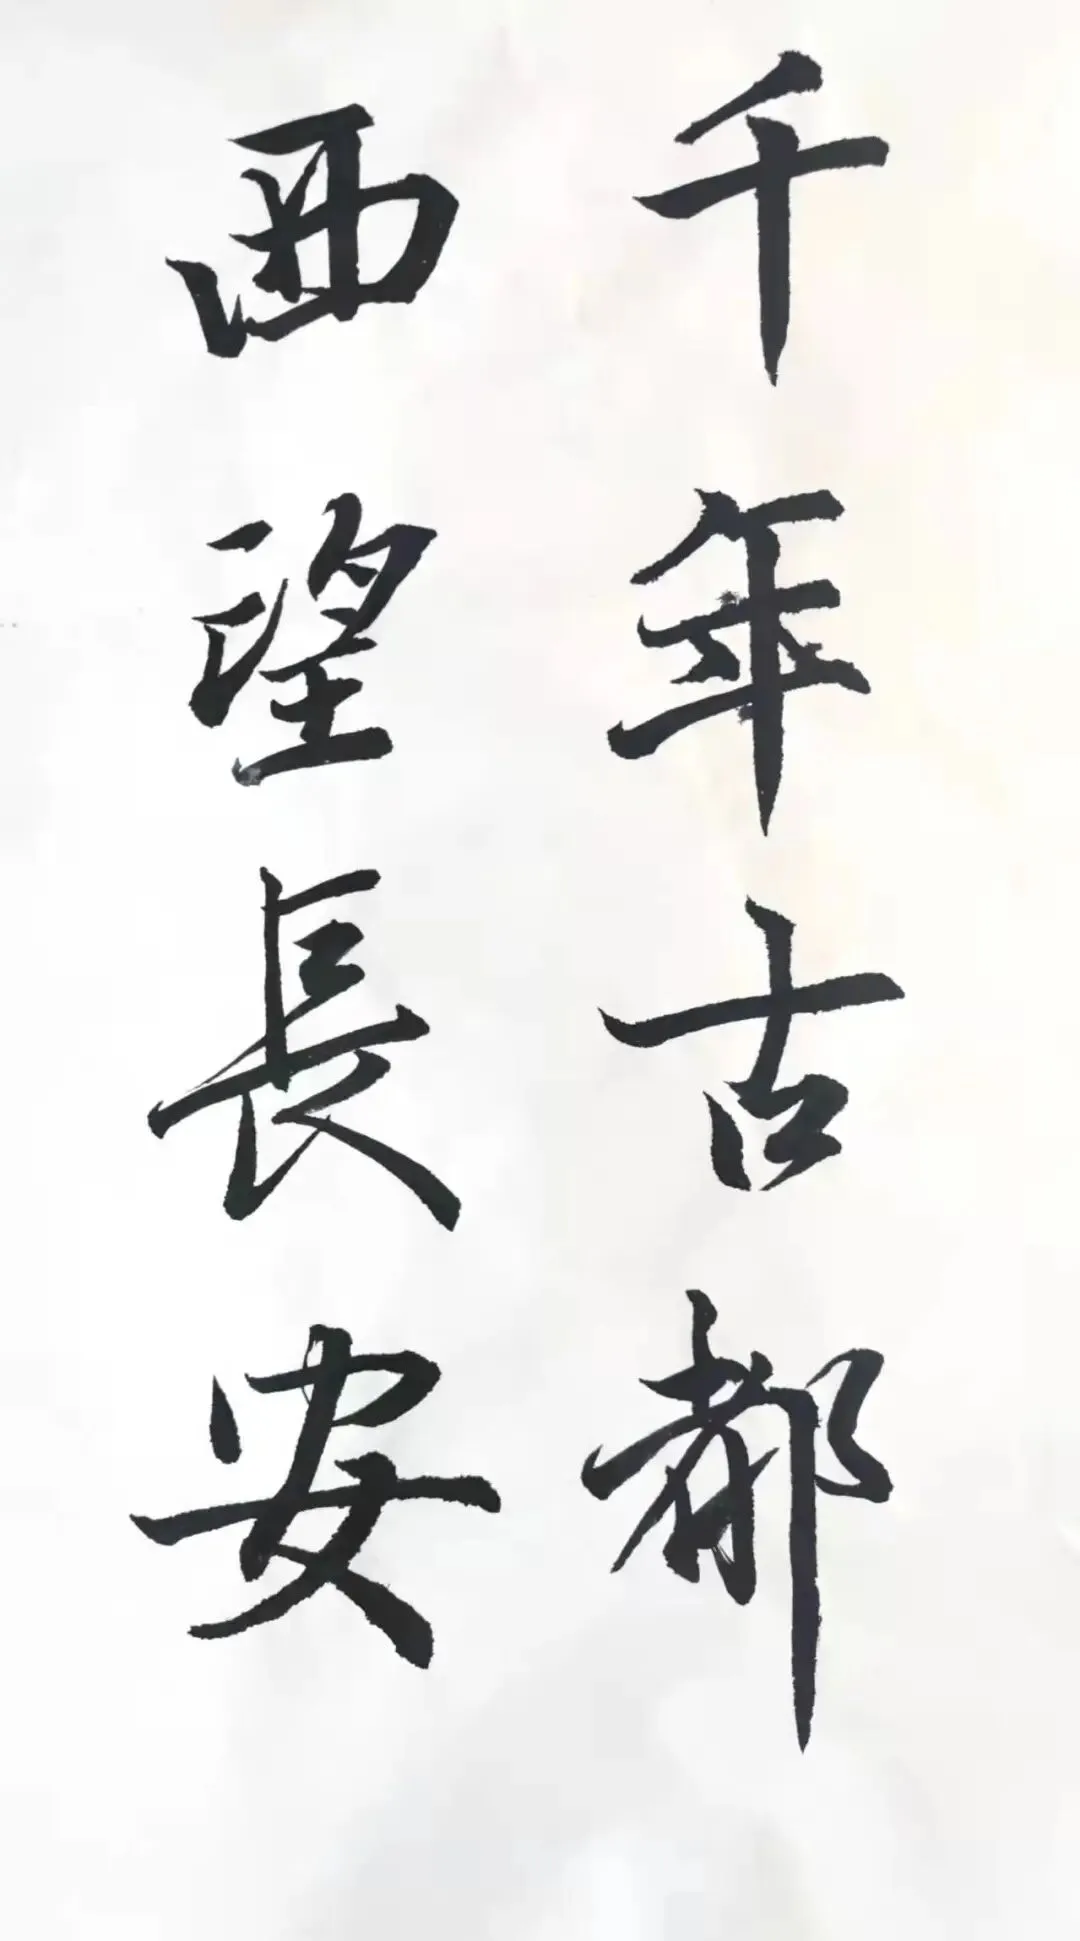 千年古都
西望長安